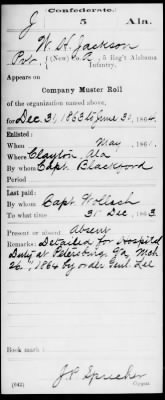 Confederate.
J 5 Ala.
W. H. Jackson
Pvt., (New) Co. A, 5 Reg't Alabama
Infantry.
Appears on
Company Muster Roll
of the organization named above,
for Dec 31, 1863 to June 30, 1864.
Enlisted:
When May, 1861.
Where Clayton, Ala
By whom Capt. Blackford
Period
Last paid:
By whom Capt Wollach
To what time 31 Dec, 1863.
Present or absent Absent
Remarks: Detailed for Hospital
Duty at Petersburg, Va, Mch
26", 1864 by order Genl Lee
Book mark:
J. P. Sprecher
(642) Copyist.